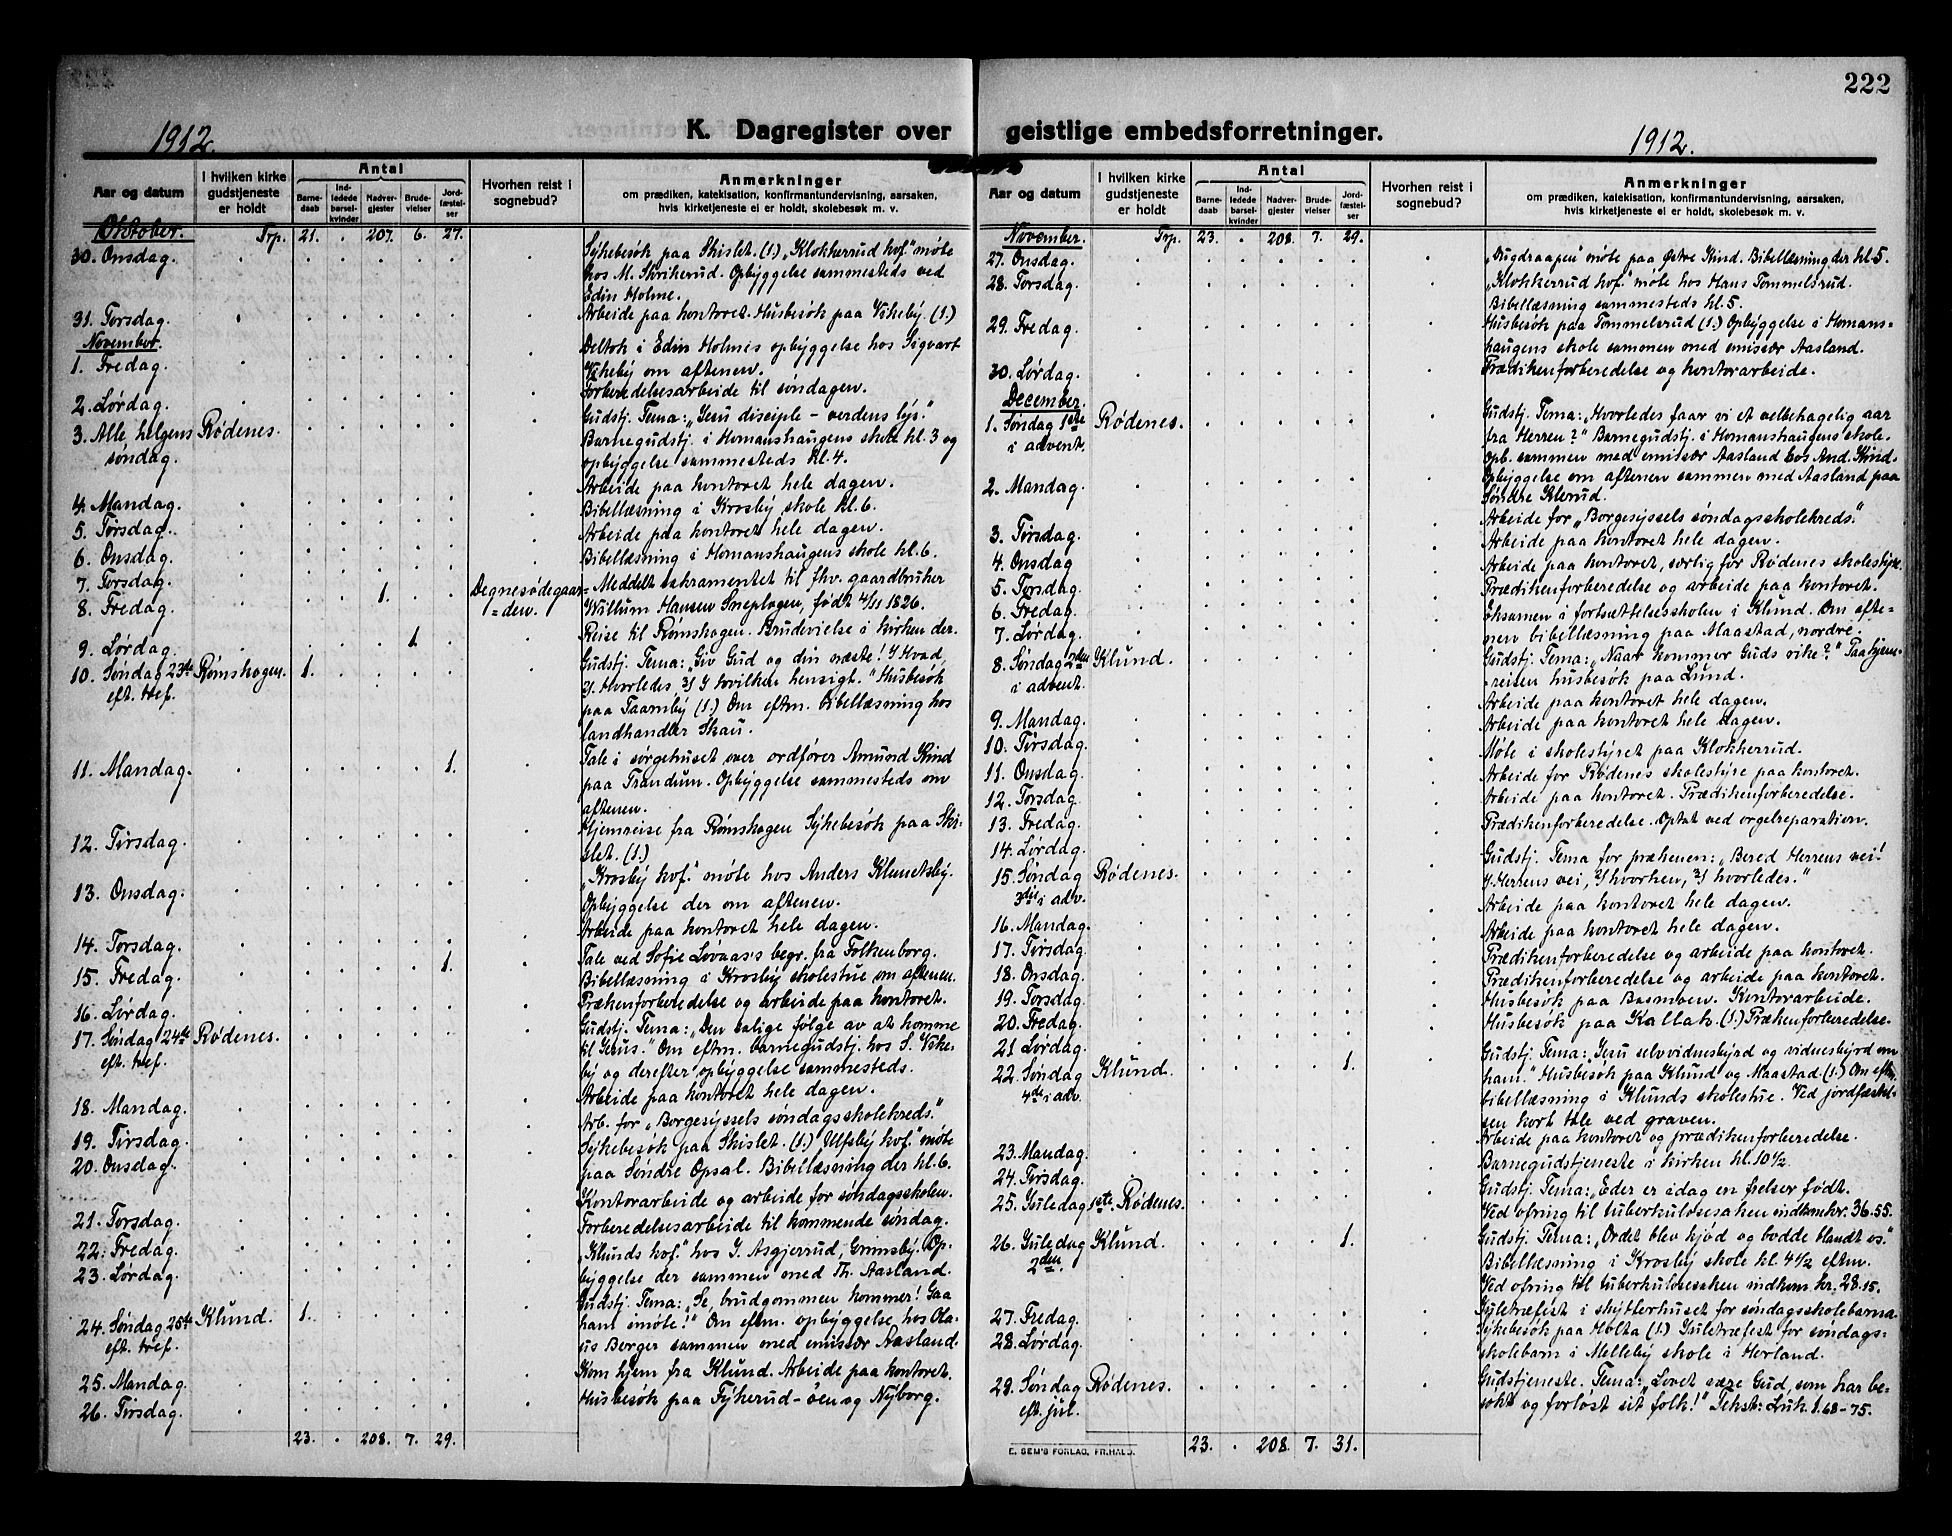 222
1912.
K. Dagregister over geistlige embedsforretninger.
1912.
Aar og datum
I hvilken kirke gudstjeneste er holdt
Antal
Barnedaab
Indledede barselkvinder
Nadvergjester
Brudevielser
Jordfæstelser
Hvorhen reist i sognebud?
Anmerkninger
om prædiken, katekisation, konfirmantundervisning, aarsaken, hvis kirketjeneste ei er holdt, skolebesøk m. v.
Oktober. Trp. 21. . 207. 6. 27.
30. Onsdag. Sykebesøk paa Skislet. (1.) „Klokkerrud kof." møte
hos M. Skrikerud. Opbyggelse sammesteds ved
Edin Holme.
31. Torsdag. Arbeide paa kontoret. Husbesøk paa Vikeby. (1.)
November.
1. Fredag. Deltok i Edin Holmes opbyggelse hos Sigvart
Vikeby om aftenen.
2. Lørdag. Forberedelsesarbeide til søndagen.
3. Alle helgens søndag. Rødenes. Gudstj. Tema: „Jesu disciple – verdens lys."
Barnegudstj. i Homanshaugens skole kl. 3 og
opbyggelse sammesteds kl. 4.
4. Mandag. Arbeide paa kontoret hele dagen.
5. Tirsdag. Bibellæsning i Krosby skole kl. 6.
6. Onsdag. Arbeide paa kontoret hele dagen.
7. Torsdag. Bibellæsning i Homanshaugens skole kl. 6.
8. Fredag. 1. Degnesødegaar=den. Meddelt sakramentet til fhv. gaardbruker
Willum Hansen Sneplogen, født 4/11 1826.
9. Lørdag. 1 Reise til Rømskogen. Brudevielse i kirken der.
10. Søndag 23de eft. tref. Rømskogen. 1. Gudstj. Tema: „Giv Gud og din næste! 1/ Hvad,
2/ Hvorledes 3/ I hvilken hensigt." Husbesøk
paa Taarnby (1.) Om eftm. bibellæsning hos
landhandler Skau.
11. Mandag. 1. Tale i sørgehuset over ordfører Amund Kind
paa Trandum. Opbyggelse sammesteds om
aftenen.
12. Tirsdag. Hjemreise fra Rømskogen Sykebesøk paa Ski-
slet. (1.)
13. Onsdag. „Krosby kof." møte hos Anders Klemetsby.
Opbyggelse der om aftenen.
14. Torsdag. Arbeide paa kontoret hele dagen.
15. Fredag. 1. Tale ved Sofie Løvaas's begr. fra Folkenborg.
Bibellæsning i Krosby skolestue om aftenen.
16. Lørdag. Prækenforberedelse og arbeide paa kontoret.
17. Søndag 24de eft. tref. Rødenes. Gudstj. Tema: „Den salige følge av at komme
til Jesus." Om eftm. barnegudstj. hos S. Vike-
by og derefter opbyggelse sammesteds.
18. Mandag. Arbeide paa kontoret hele dagen.
19. Tirsdag. Arb. for „Borgesyssels søndagsskolekreds."
20. Onsdag. Sykebesøk paa Skislet. (1.) Ulfsby kof." møte
paa Søndre Opsal. Bibellæsning der kl. 6.
21. Torsdag. Kontorarbeide og arbeide for søndagsskolen.
22. Fredag. Forberedelsesarbeide til kommende søndag.
23. Lørdag. „Klunds kof." hos J. Asgjerrud, Grimsby. Op-
byggelse der sammen med Th. Aasland.
24. Søndag 25de eft. tref. Klund. 1. Gudstj. Tema: „Se, brudgommen kommer! Gaa
ham imøte!" Om eftm. opbyggelse hos Ola-
us Berger sammen med emissær Aasland.
25. Mandag. Kom hjem fra Klund. Arbeide paa kontoret.
26. Tirsdag. Husbesøk paa Fykerud-øen og Nyborg.
23. . 208. 7. 29.
Aar og datum
I hvilken kirke gudstjeneste er holdt
Antal
Barnedaab
Indledede barselkvinder
Nadvergjester
Brudevielser
Jordfæstelser
Hvorhen reist i sognebud?
Anmerkninger
om prædiken, katekisation, konfirmantundervisning, aarsaken, hvis kirketjeneste ei er holdt, skolebesøk m. v.
November. Trp. 23. . 208. 7. 29.
27. Onsdag. „Dugdraapen" møte paa Østre Kind. Bibellæsning der kl. 5.
28. Torsdag. „Klokkerrud kof." møte hos Hans Tommelsrud.
Bibellæsning sammesteds kl. 5.
29. Fredag. Husbesøk paa Tommelsrud (1.) Opbyggelse i Homans-
haugens skole sammen med emissær Aasland.
30. Lørdag. Prædikenforberedelse og kontorarbeide.
December.
1. Søndag 1ste i advent. Rødenes. Gudstj. Tema: „Hvorledes faar vi et velbehagelig aar
fra Herren?" Barnegudstj. i Homanshaugens skole.
Opb. sammen med emissær Aasland hos And. Kind.
2. Mandag. Opbyggelse om aftenen sammen med Aasland paa
Søndre Klerud.
3. Tirsdag. Arbeide for „Borgesyssels søndagsskolekreds."
4. Onsdag Arbeide paa kontoret hele dagen.
5. Torsdag. Arbeide paa kontoret, særlig for Rødenes skolestyre.
6. Fredag. Prædikenforberedelse og arbeide paa kontoret.
7. Lørdag. Eksamen i fortsættelsesskolen i Klund. Om afte-
nen bibellæsning paa Maastad, nordre.
8. Søndag 2den i advent. Klund. Gudstj. Tema: „Naar kommer Guds rike?" Paa hjem-
reisen husbesøk paa Lund.
9. Mandag. Arbeide paa kontoret hele dagen.
10. Tirsdag. Arbeide paa kontoret hele dagen.
11. Onsdag. Møte i skolestyret paa Klokkerrud.
12. Torsdag. Arbeide for Rødenes skolestyre paa kontoret.
13. Fredag. Arbeide paa kontoret. Prædikenforberedelse.
14. Lørdag. Prædikenforberedelse. Optat ved orgelreparation.
15. Søndag 3die i adv. Rødenes. Gudstj. Tema for prækenen: „Bered Herrens vei!
1/ Herrens vei, 2/ hvorhen, 3/ hvorledes."
16. Mandag. Arbeide paa kontoret hele dagen.
17. Tirsdag Arbeide paa kontoret hele dagen.
18. Onsdag. Prædikenforberedelse og arbeide paa kontoret.
19. Torsdag. Prædikenforberedelse og arbeide paa kontoret.
20. Fredag. Husbesøk paa Basmoen. Kontorarbeide.
21 Lørdag. Husbesøk paa Kallak. (1.) Prækenforberedelse.
22. Søndag 4de i adv. Klund. 1. Gudstj. Tema: „Jesu selvvidnesbyrd og vidnesbyrd om
ham." Husbesøk paa Klund og Maastad (1.) Om eftm.
bibellæsning i Klunds skolestue. Ved jordfæstel-
sen kort tale ved graven.
23. Mandag. Arbeide paa kontoret og prædikenforberedelse.
24. Tirsdag. Barnegudstjeneste i kirken kl. 10 1/2
25. Juledag 1ste. Rødenes. Gudstj. Tema: „Eder er idag en frelser født.
Ved ofring til tuberkulosesaken indkom kr. 36.55.
26. Juledag 2den. Klund. 1. Gudstj. Tema: „Ordet blev kjød og bodde blandt os."
Bibellæsning i Krosby skole kl. 4 1/2 eftm.
Ved ofring til tuberkulosesaken indkom kr. 28.15.
27. Fredag. Juletræfest i skytterhuset for søndagsskolebarna.
28. Lørdag. Sykebesøk paa Holta (1.) Juletræfest for søndags-
skolebarn i Melleby skole i Herland.
29. Søndag eft. jul. Rødenes. Gudstjeneste. Tema: „Lovet være Gud, som har be-
søkt og forløst sit folk!" Tekst: Luk. 1.68–75.
23. . 208. 7. 31.
E. SEM'S FORLAG, FR.HALD.